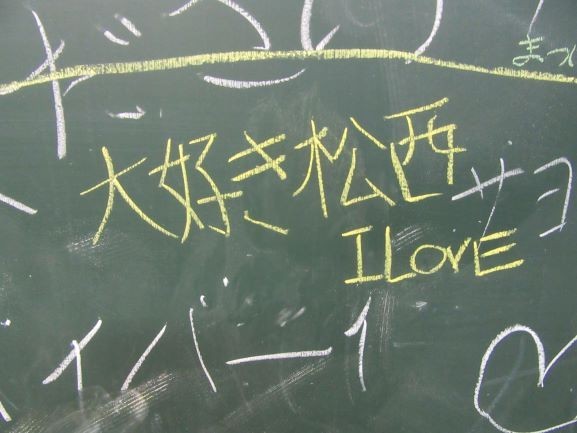 まっ
大好き松西
サヨ
I LOVE
イバー1